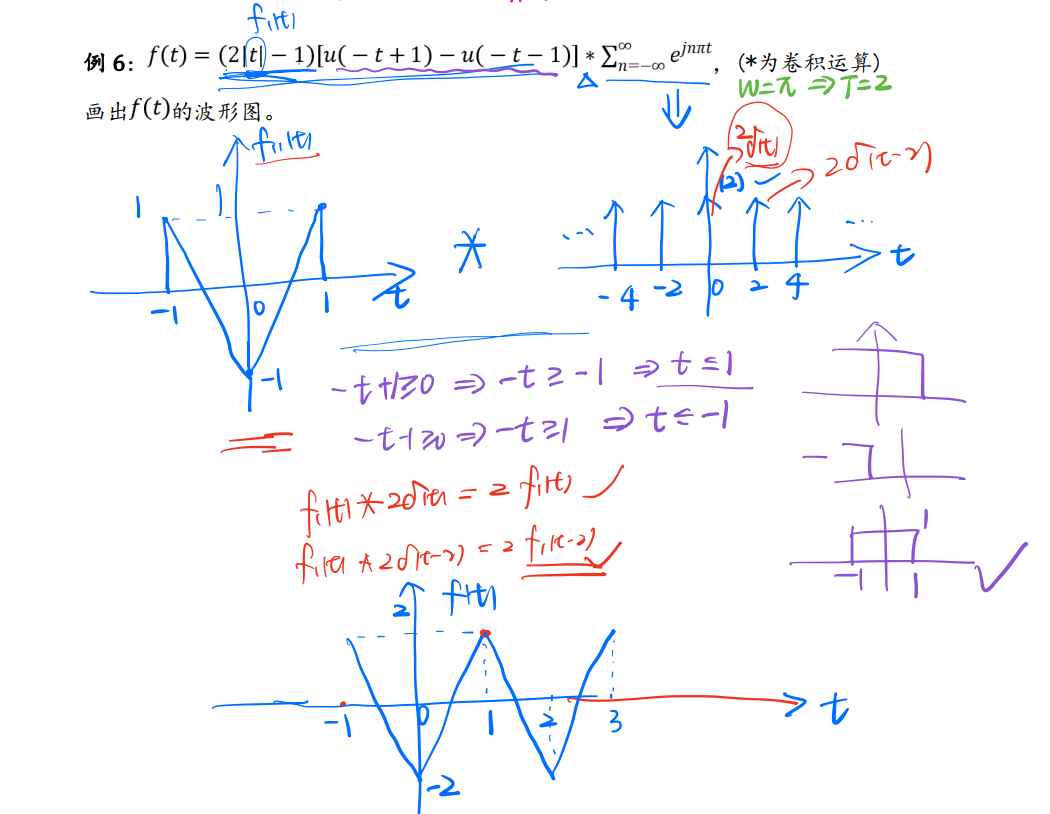 f₁(t)
例 6：f(t) = (2|t| − 1)[u(−t + 1) − u(−t − 1)] ∗ ∑_{n=−∞}^{∞} e^{jnπt}，(*为卷积运算)
w=π ⇒ T=2
画出f(t)的波形图。
f₁(t)
2δ(t)
2δ(t-2)
(2)
1
1
*
...
...
-4 -2 0 2 4 t
-1 0 1 t
-1
-t+1≥0 ⇒ -t ≥ -1 ⇒ t ≤ 1
-t-1≥0 ⇒ -t ≥ 1 ⇒ t ≤ -1
-
1
-1 1
f₁(t) * 2δ(t) = 2 f₁(t)
f₁(t) * 2δ(t-2) = 2 f₁(t-2)
2 f(t)
-1 0 1 2 3 t
-2